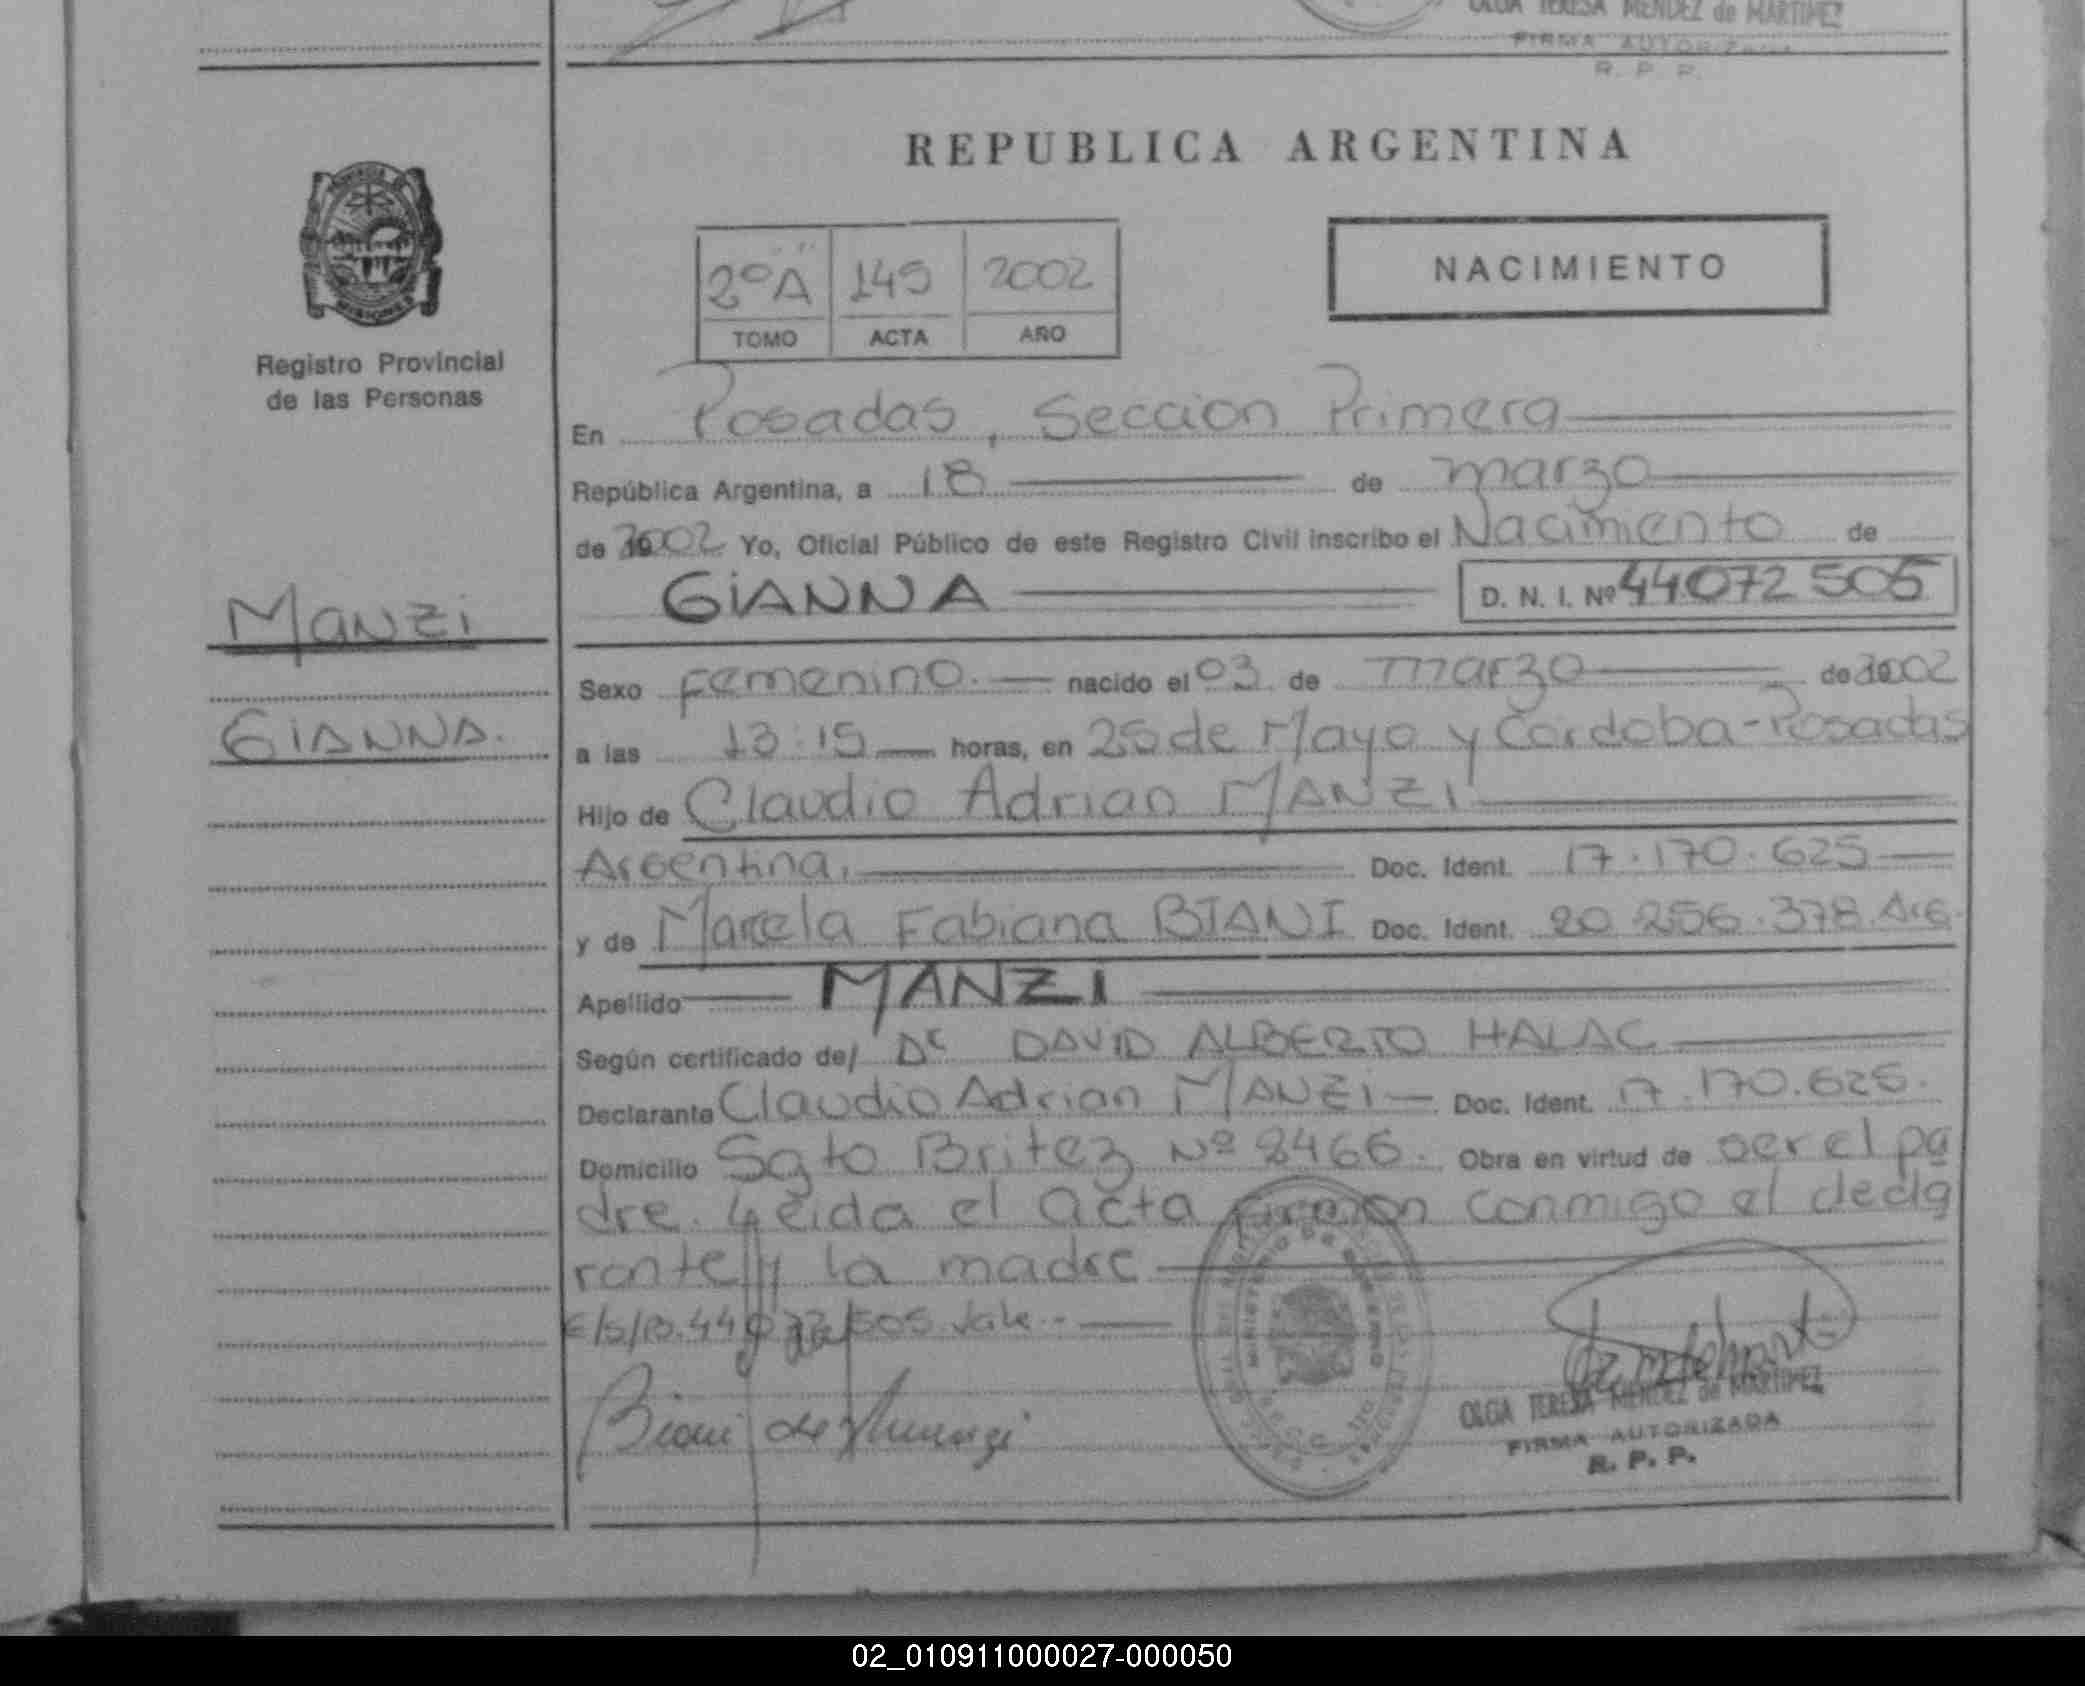 OLGA TERESA MENDEZ de MARTINEZ
FIRMA AUTORIZADA
R. P. P.
REPUBLICA ARGENTINA
2º A 145 2002
TOMO ACTA AÑO
NACIMIENTO
Registro Provincial
de las Personas
En Posadas, Sección Primera
República Argentina, a 18 de marzo
de 2002 Yo, Oficial Público de este Registro Civil inscribo el Nacimiento de
GIANNA D. N. I. Nº 44072505
Manzi
GIANNA.
Sexo Femenino. nacido el 03 de marzo de 2002
a las 13:15 horas, en 25 de Mayo y Córdoba - Posadas
Hijo de Claudio Adrian MANZI
Argentina. Doc. Ident. 17.170.625
y de Marcela Fabiana BIANI Doc. Ident. 20.256.378. Arg.
Apellido MANZI
Según certificado de/ Dr DAVID ALBERTO HALAC
Declarante Claudio Adrian MANZI Doc. Ident. 17.170.625.
Domicilio Sgto Britez Nº 2466. Obra en virtud de ser el pa
dre. Leida el acta firman conmigo el decla
rante y la madre
E/S/R. 44.072.505 Vale.
Biani de Manzi
MINISTERIO DE GOBIERNO
OLGA TERESA MENDEZ de MARTINEZ
FIRMA AUTORIZADA
R. P. P.
02_010911000027-000050